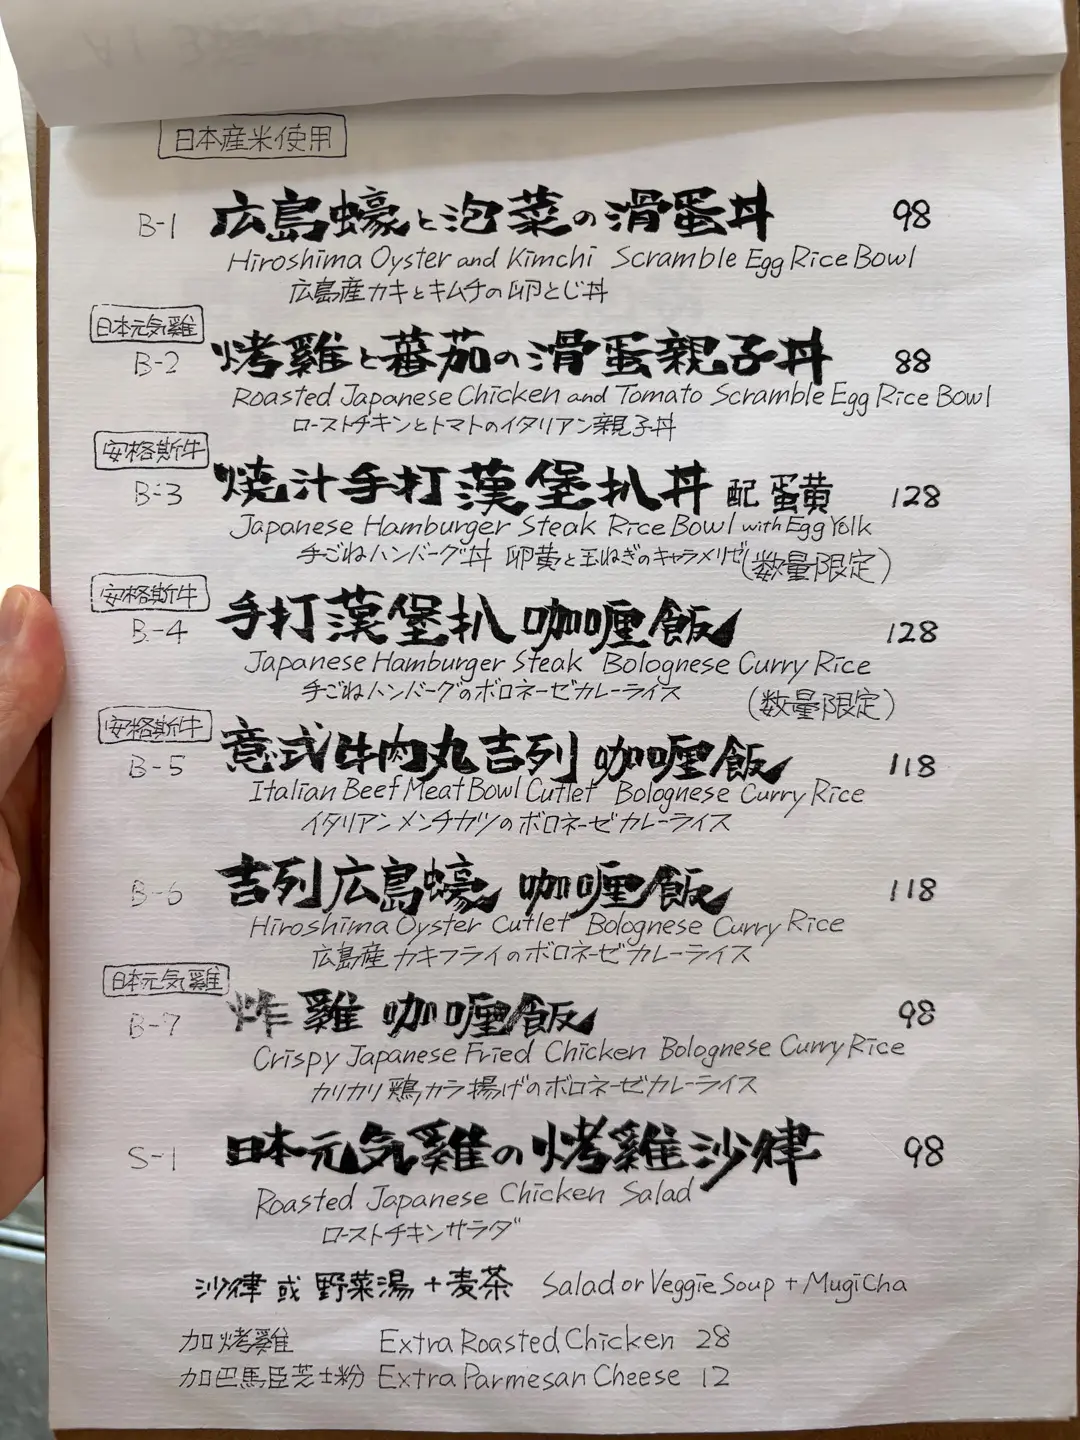 日本産米使用
B-1 広島蠔と泡菜の滑蛋丼 98
Hiroshima Oyster and Kimchi Scramble Egg Rice Bowl
広島産カキとキムチの卵とじ丼
日本元気雞
B-2 烤雞と蕃茄の滑蛋親子丼 88
Roasted Japanese Chicken and Tomato Scramble Egg Rice Bowl
ローストチキンとトマトのイタリアン親子丼
安格斯牛
B-3 燒汁手打漢堡扒丼 配蛋黄 128
Japanese Hamburger Steak Rice Bowl with Egg Yolk
手ごねハンバーグ丼 卵黄と玉ねぎのキャラメリゼ(数量限定)
安格斯牛
B-4 手打漢堡扒 咖喱飯 128
Japanese Hamburger Steak Bolognese Curry Rice
手ごねハンバーグのボロネーゼカレーライス (数量限定)
安格斯牛
B-5 意式牛肉丸吉列 咖喱飯 118
Italian Beef Meat Bowl Cutlet Bolognese Curry Rice
イタリアンメンチカツのボロネーゼカレーライス
B-6 吉列広島蠔 咖喱飯 118
Hiroshima Oyster Cutlet Bolognese Curry Rice
広島産カキフライのボロネーゼカレーライス
日本元気雞
B-7 炸雞 咖喱飯 98
Crispy Japanese Fried Chicken Bolognese Curry Rice
カリカリ鶏カラ揚げのボロネーゼカレーライス
S-1 日本元気雞の烤雞沙律 98
Roasted Japanese Chicken Salad
ローストチキンサラダ
沙律 或 野菜湯+麦茶 Salad or Veggie Soup + MugiCha
加烤雞 Extra Roasted Chicken 28
加巴馬臣芝士粉 Extra Parmesan Cheese 12